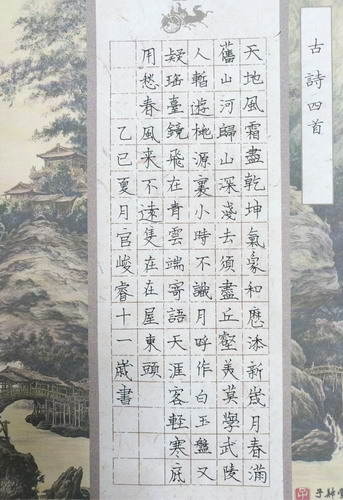 古詩四首
天地風霜盡乾坤氣象和厯添新歲月春滿
舊山河歸山深淺去須盡丘壑美莫學武陵
人暫遊桃源裏小時不識月呼作白玉盤又
疑瑤臺鏡飛在青雲端寄語天涯客輕寒底
用愁春風来不遠隻在在屋東頭
乙巳夏月官峻睿十一歲書